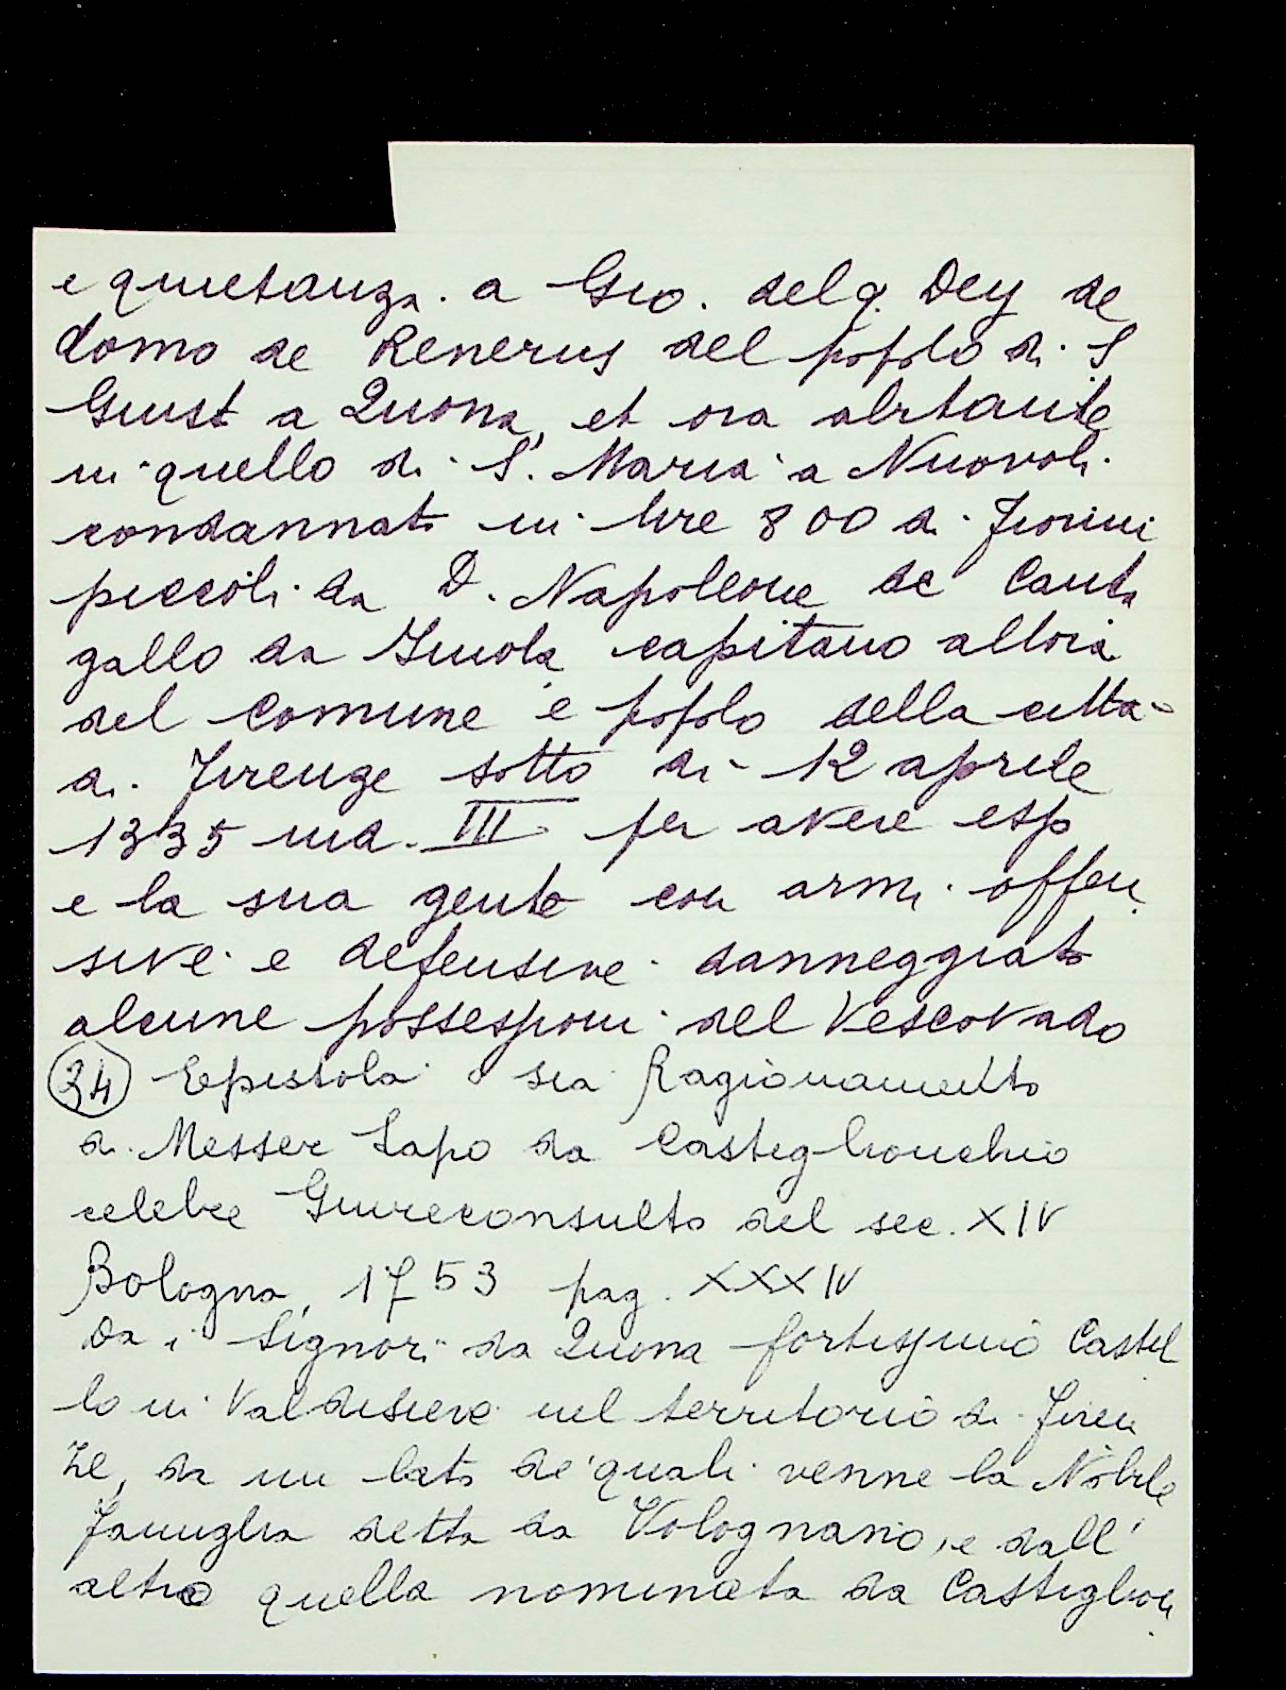 e quietanza. a Gio. del q. Dey de
domo de Renerus del popolo di S
Giusto a Quona, et ora abitante
in quello di S. Maria a Nuovoli
condannato in lire 800 di Fiorini
piccoli da D. Napoleone de Canta
gallo da Imola, capitano allora
del Comune e popolo della città
di Firenze sotto dì 12 aprile
1335 ind. III per avere esso
e la sua gente con armi offen
sive e defensive danneggiato
alcune possessioni del Vescovado
(34) Epistola o sia Ragionamento
di Messer Lapo da Castiglionchio
celebre Giureconsulto del sec. XIV
Bologna, 1753 pag. XXXIV
Da i Signori da Quona fortissimo Castel
lo in Valdisieve nel territorio di Firen
ze, da un lato de' quali venne la Nobile
Famiglia detta da Volognano, e dall'
altro quella nominata da Castiglion